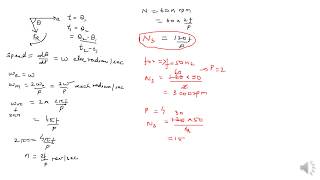 t = θ₁
t₁ = θ₂
θ₂ - θ₁
t₂ - t₁
speed = dθ/dt = ω elec radian/sec
ω_e = ω
ω_m = 2ω_e/P = 2ω/P mech radian/sec
ω_m = 2π 2f/P
= 4πf/P
2πn = 4πf/P
n = 2f/P rev/sec
N = 60 n rpm
= 60 × 2f/P
N_s = 120f/P
f = 50Hz
P = 2
120 × 50/2
= 3000 rpm
P = 4
N_s = 120 × 50/4
= 15